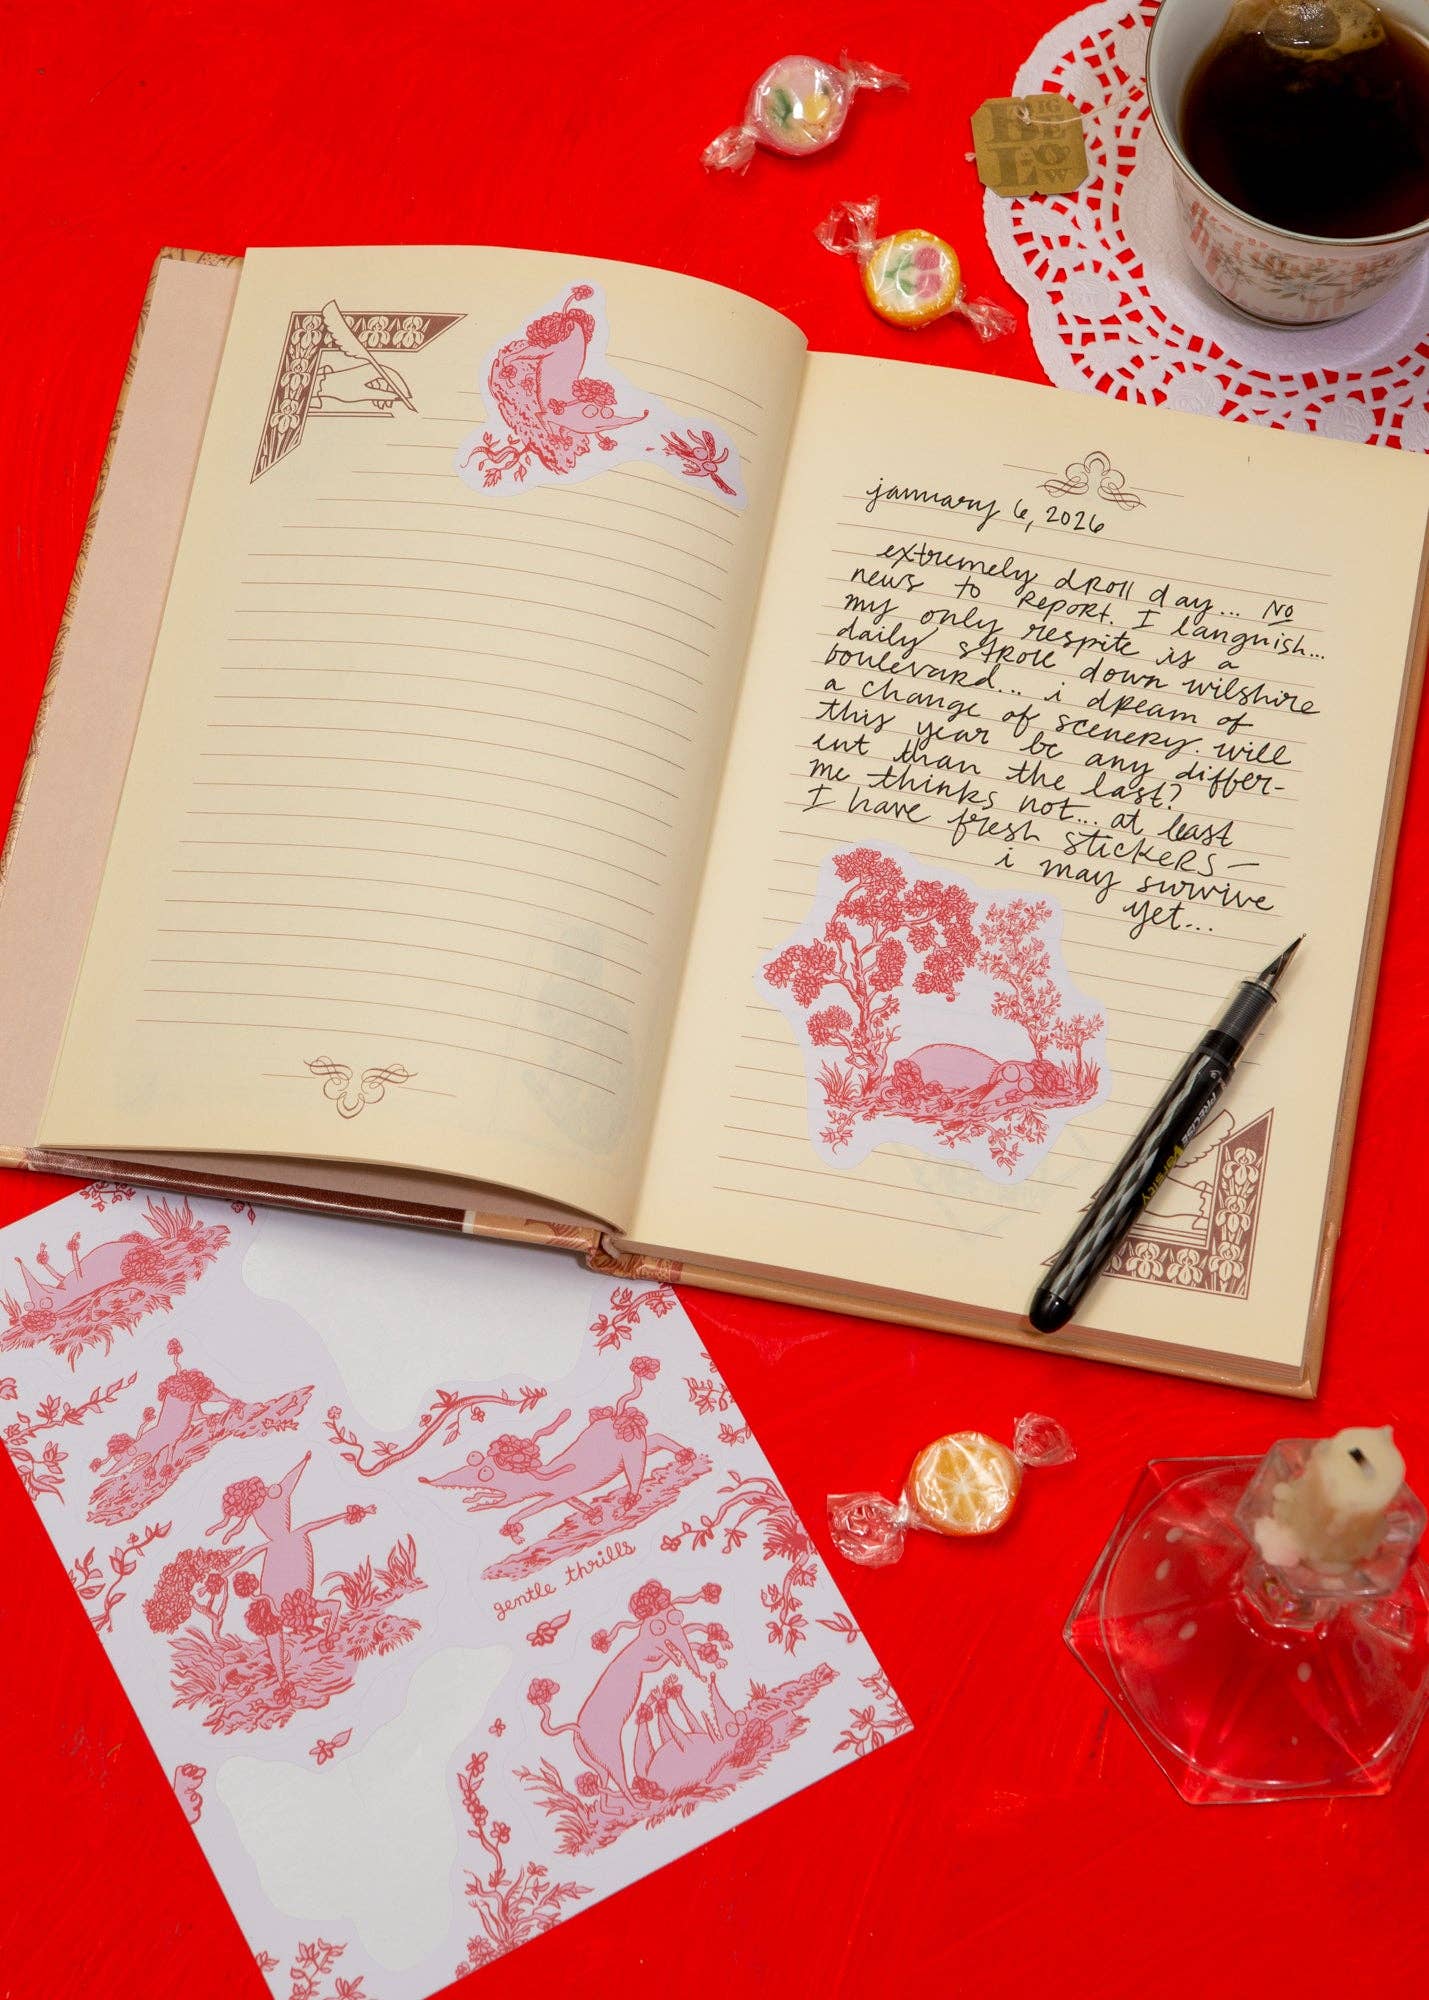 BIGELOW
january 6, 2026
extremely droll day... No
news to report. I languish...
my only respite is a
daily stroll down wilshire
boulevard... i dream of
a change of scenery. will
this year be any differ-
ent than the last?
me thinks not... at least
I have fresh stickers—
i may survive
yet...
PRECISE Varsity
gentle thrills